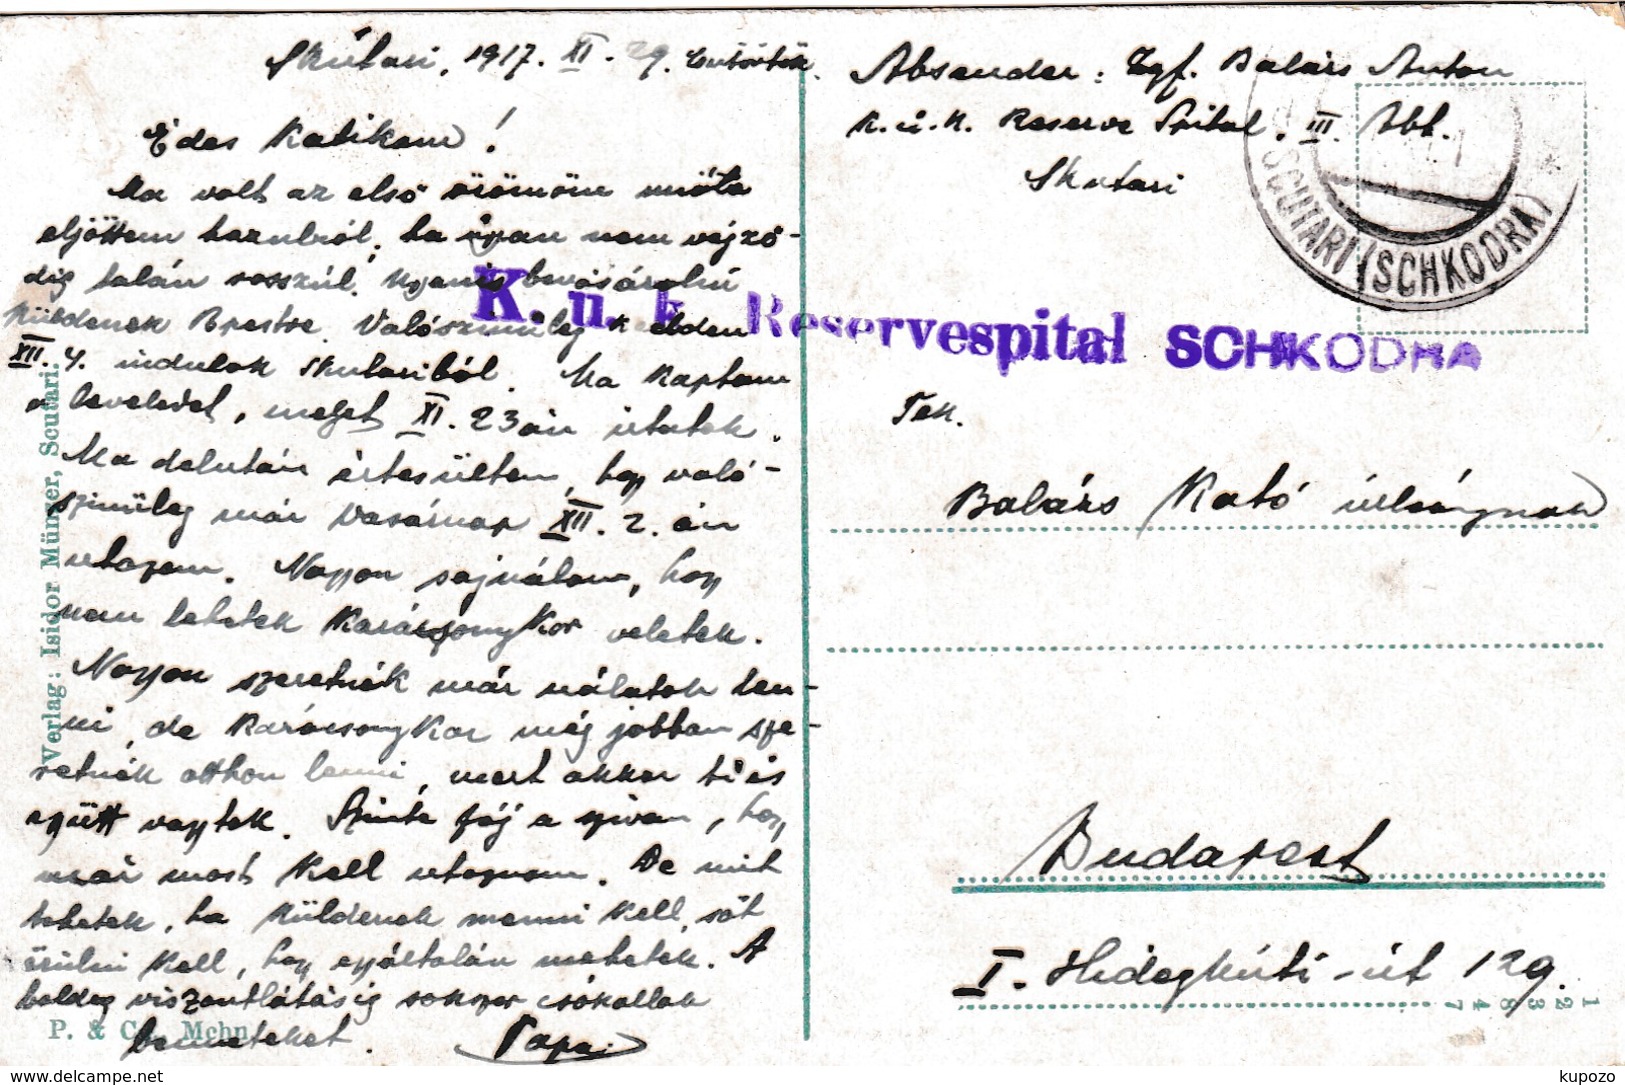 Skutari, 1917. XI. 29. Csütörtök.
Édes Katikám!
Ma volt az első örömöm mióta
eljöttem hazulról, ha ugyan nem végző-
dig talán rosszúl. Ugyanis bevásárolni
küldenek Bpestre. Valószinűleg kedden
XII. 4. indulok Skutariból. Ma kaptam
a leveledet, melyet XI. 23án írtatok.
Ma délután értesültem, hogy való-
szinüleg már Vasárnap XII. 2.án
utazom. Nagyon sajnálom, hogy
nem lehetek Karácsonykor veletek.
Nagyon szeretnék már nálatok len-
ni, de Karácsonykor még jobban sze-
retnék otthon lenni, mert akkor ti is
együtt vagytok. Szinte fáj a szivem, hogy
már most kell utaznom. De mit
tehetek, ha küldenek menni kell, sőt
örülni kell, hogy egyáltalán mehetek. A
boldog viszontlátásig sokszor csókollak
benneteket. Papa
Verlag: Isidor Münzer, Scutari.
P. & C., Mchn.
Absender: Zgf. Balázs Anton
K. u. K. Reserve Spital. III Abt.
Skutari
SCUTARI (SCHKODRA)
K. u. k. Reservespital SCHKODRA
Tek.
Balázs Kató úrleánynak
Budapest
I. Hidegkúti-út 129.
123847
kupozo